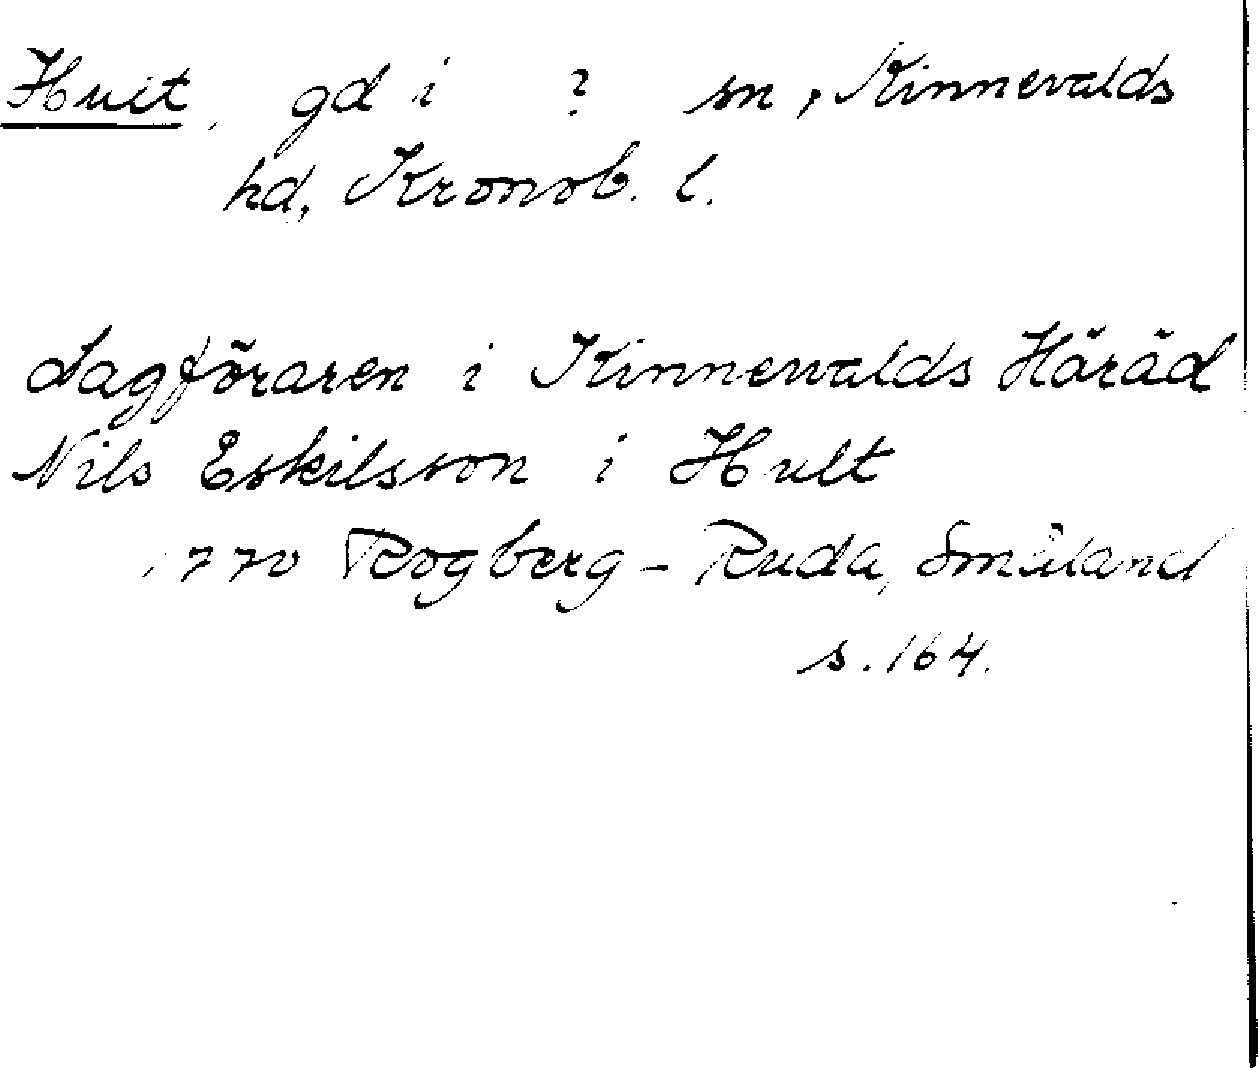 Hult, gd i ? sn, Kinnevalds
hd, Kronob. l.
Lagföraren i Kinnewalds Häräd
Nils Eskilsson i Hult
1770 Rogberg - Ruda, Småland
s. 164.